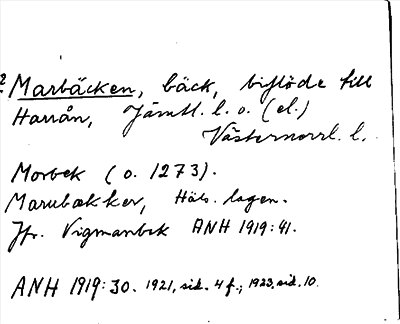 2. Marbäcken, bäck, biflöde till
Harrån, Jämtl. l. o. (el.)
Västernorrl. l.
Morbek (o. 1273).
Marubækker, Häls. lagen.
Jfr. Vigmanbek ANH 1919:41.
ANH 1919:30. 1921, sid. 4 f.; 1923, sid. 10.